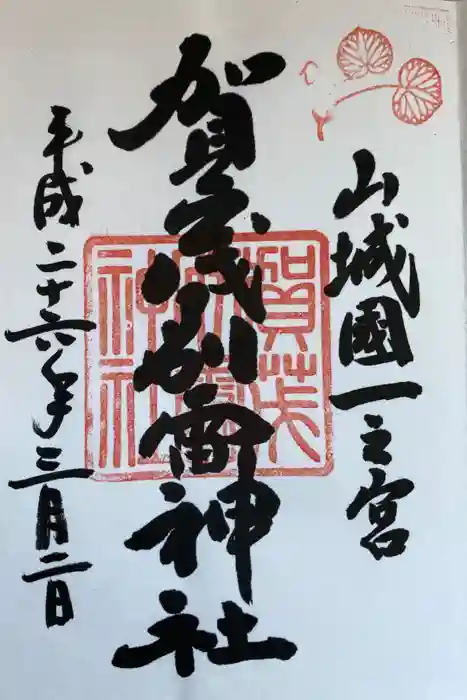 山城國一之宮
賀茂別雷神社
平成二十六年三月二日
賀茂
別雷
神社